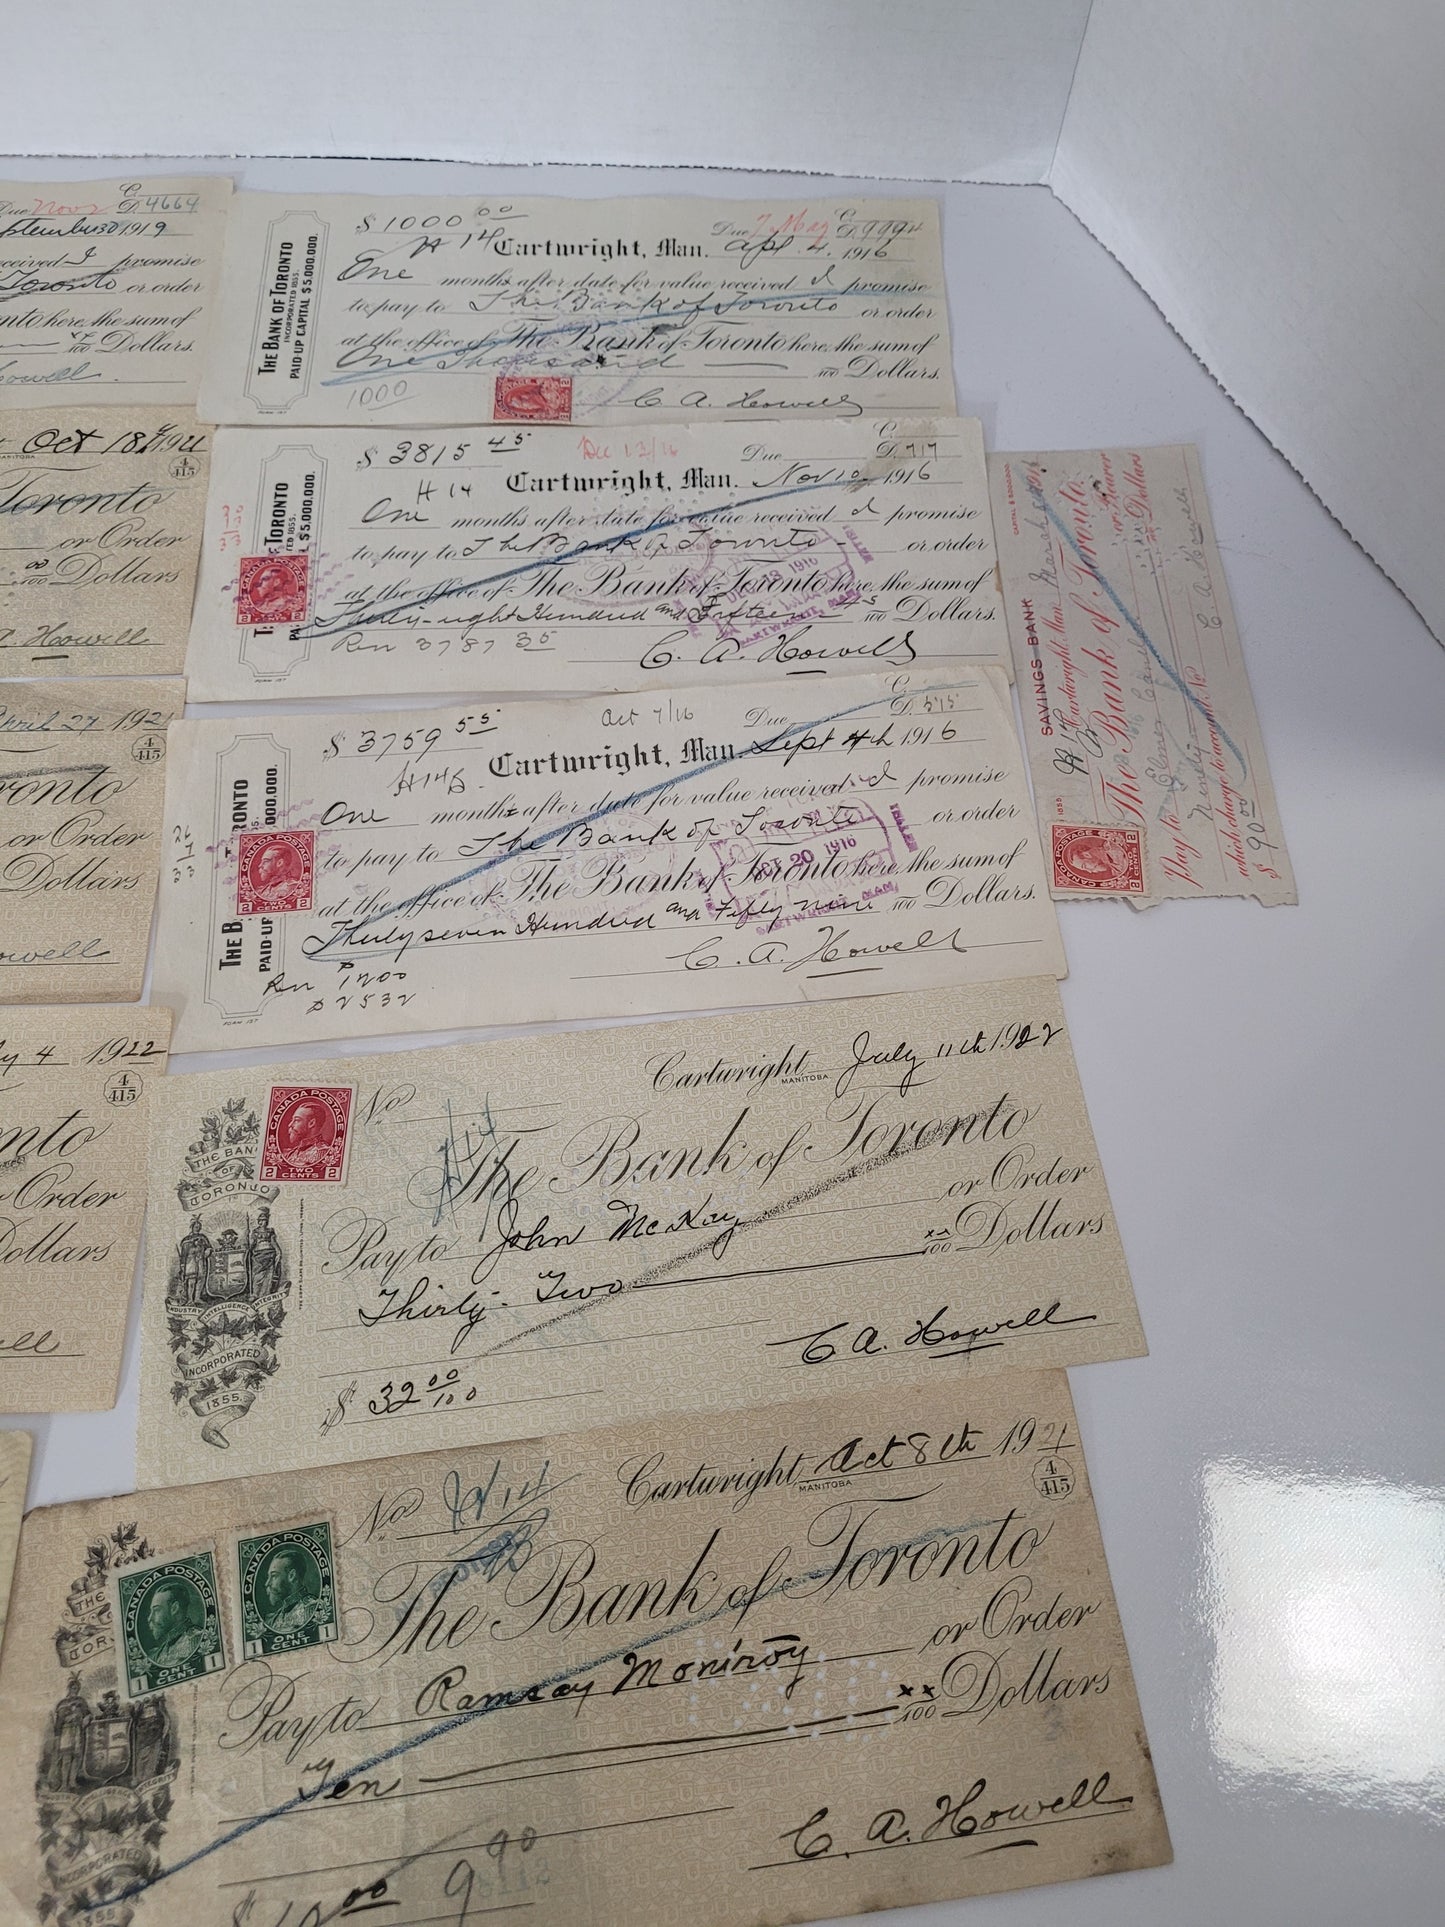 Due Nov 2 D. 4664
1919
eceived I promise
Toronto or order
onto here, the sum of
100 Dollars.
Howell.
Oct 18th
MANITOBA
4
415
Toronto
or Order
00
100 Dollars
A. Howell
April 27 1921
4
415
ronto
or Order
Dollars
owell
4 1922
4
415
nto
Order
Dollars
ell
THE BANK OF TORONTO
INCORPORATED 1855.
PAID-UP CAPITAL $5,000,000.
FORM 157
$ 1000 00
H 14
Due 7 May
C.
D. 9994
Cartwright, Man. Apl. 4. 1916
One months after date for value received I promise
to pay to The Bank of Toronto or order
at the office of The Bank of Toronto here, the sum of
One Thousand 100 Dollars.
1000
C. A. Howell
TORONTO
1855.
$5,000,000.
FORM 157
$ 3815 45
Dec 13/16
Due
C.
D. 717
H 14 Cartwright, Man. Nov 10 1916
One months after date for value received I promise
to pay to The Bank of Toronto or order
at the office of The Bank of Toronto here, the sum of
Thirty-eight Hundred and Fifteen 45 100 Dollars.
Ren 3787 35
C. A. Howell
CANADA POSTAGE
2 TWO CENTS 2
1916
CARTWRIGHT, MAN.
THE B RONTO
PAID-UP 000,000.
FORM 157
$ 3759 55
Oct 7/16
Due
C.
D. 515
Cartwright, Man. Sept 4th 1916
H14
One months after date for value received I promise
to pay to The Bank of Toronto or order
at the office of The Bank of Toronto here, the sum of
Thirty seven Hundred and Fifty nine 100 Dollars.
Ren $1200
$2532
C. A. Howell
CANADA POSTAGE
2 TWO CENTS 2
OCT 20 1916
CARTWRIGHT, MAN.
SAVINGS BANK
CAPITAL $5,000,000.
1855
Cartwright, Man. March
The Bank of Toronto
Pay to Elmer or Bearer
Ninety Dollars
which charge to account No.
$ 90.00
C. A. Howell
CANADA POSTAGE
2 TWO CENTS 2
No
Cartwright July 11th 1922
MANITOBA
H14
The Bank of Toronto
Pay to John McKay or Order
Thirty-Two xx 100 Dollars
$ 32 00 100
C A. Howell
THE BAN
OF
TORONTO
INDUSTRY INTELLIGENCE INTEGRITY
INCORPORATED
1855.
CANADA POSTAGE
2 TWO CENTS 2
No H 14
Cartwright Oct 8th 1921
MANITOBA
4
415
The Bank of Toronto
Pay to Ramsay or Order
Ten xx 100 Dollars
$ 10 00
9 90
C. A. Howell
CANADA POSTAGE
1 ONE CENT 1
CANADA POSTAGE
1 ONE CENT 1
THE
INCORPORATED
1855